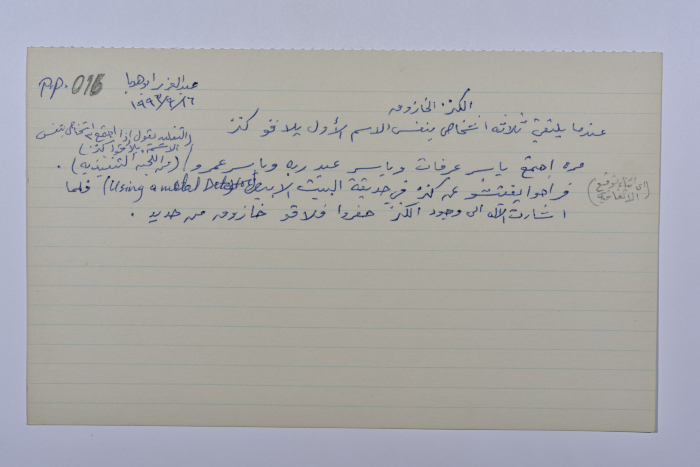 P.P. 016
عبد العزيز ابو هدبا
١٩٩٣/٩/١٦
الكنز الخازوقه
عندما يلتقي ثلاثة اشخاص بنفس الاسم الأول يلاقو كنز
(التقليد يقول إذا اجتمع ٣ اشخاص بنفس
الاسم يلاقوا كنز)
مره اجتمع ياسر عرفات وياسر عبد ربه وياسر عمرو / (من اللجنة التنفيذيه) .
فراحوا يفتشو عن كنز في حديقة البيت الابيض (Using a metal Detector) فلما
(اثناء توقيع
الاتفاقية)
اشارت الآله الى وجود الكنز حفروا فلاقو خازوقه من حديد .